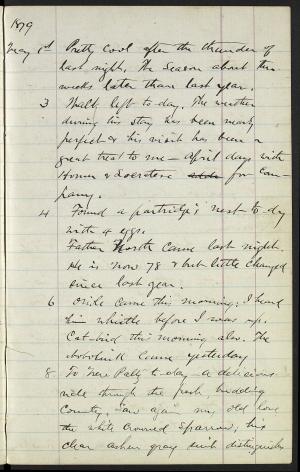 1879
May 1st Pretty cool after the thunder of
last night. The season about two
weeks later than last year.
3 Walt left to-day. The weather
during his stay has been nearly
perfect & his visit has been a
great treat to me – April days with
Homer & Socrates for com-
pany.
4 Found a partridge's nest to-day
with 4 eggs.
Father North came last night.
He is now 78 & but little changed
since last year.
6 Oriole came this morning; I heard
him whistle before I was up.
Cat-bird this morning also. The
bobolink came yesterday
8 To New Paltz to-day – a delicious
ride through the fresh, budding
country. Saw again my old love
the white crowned sparrow, his
clear ashen gray suit distinguishes